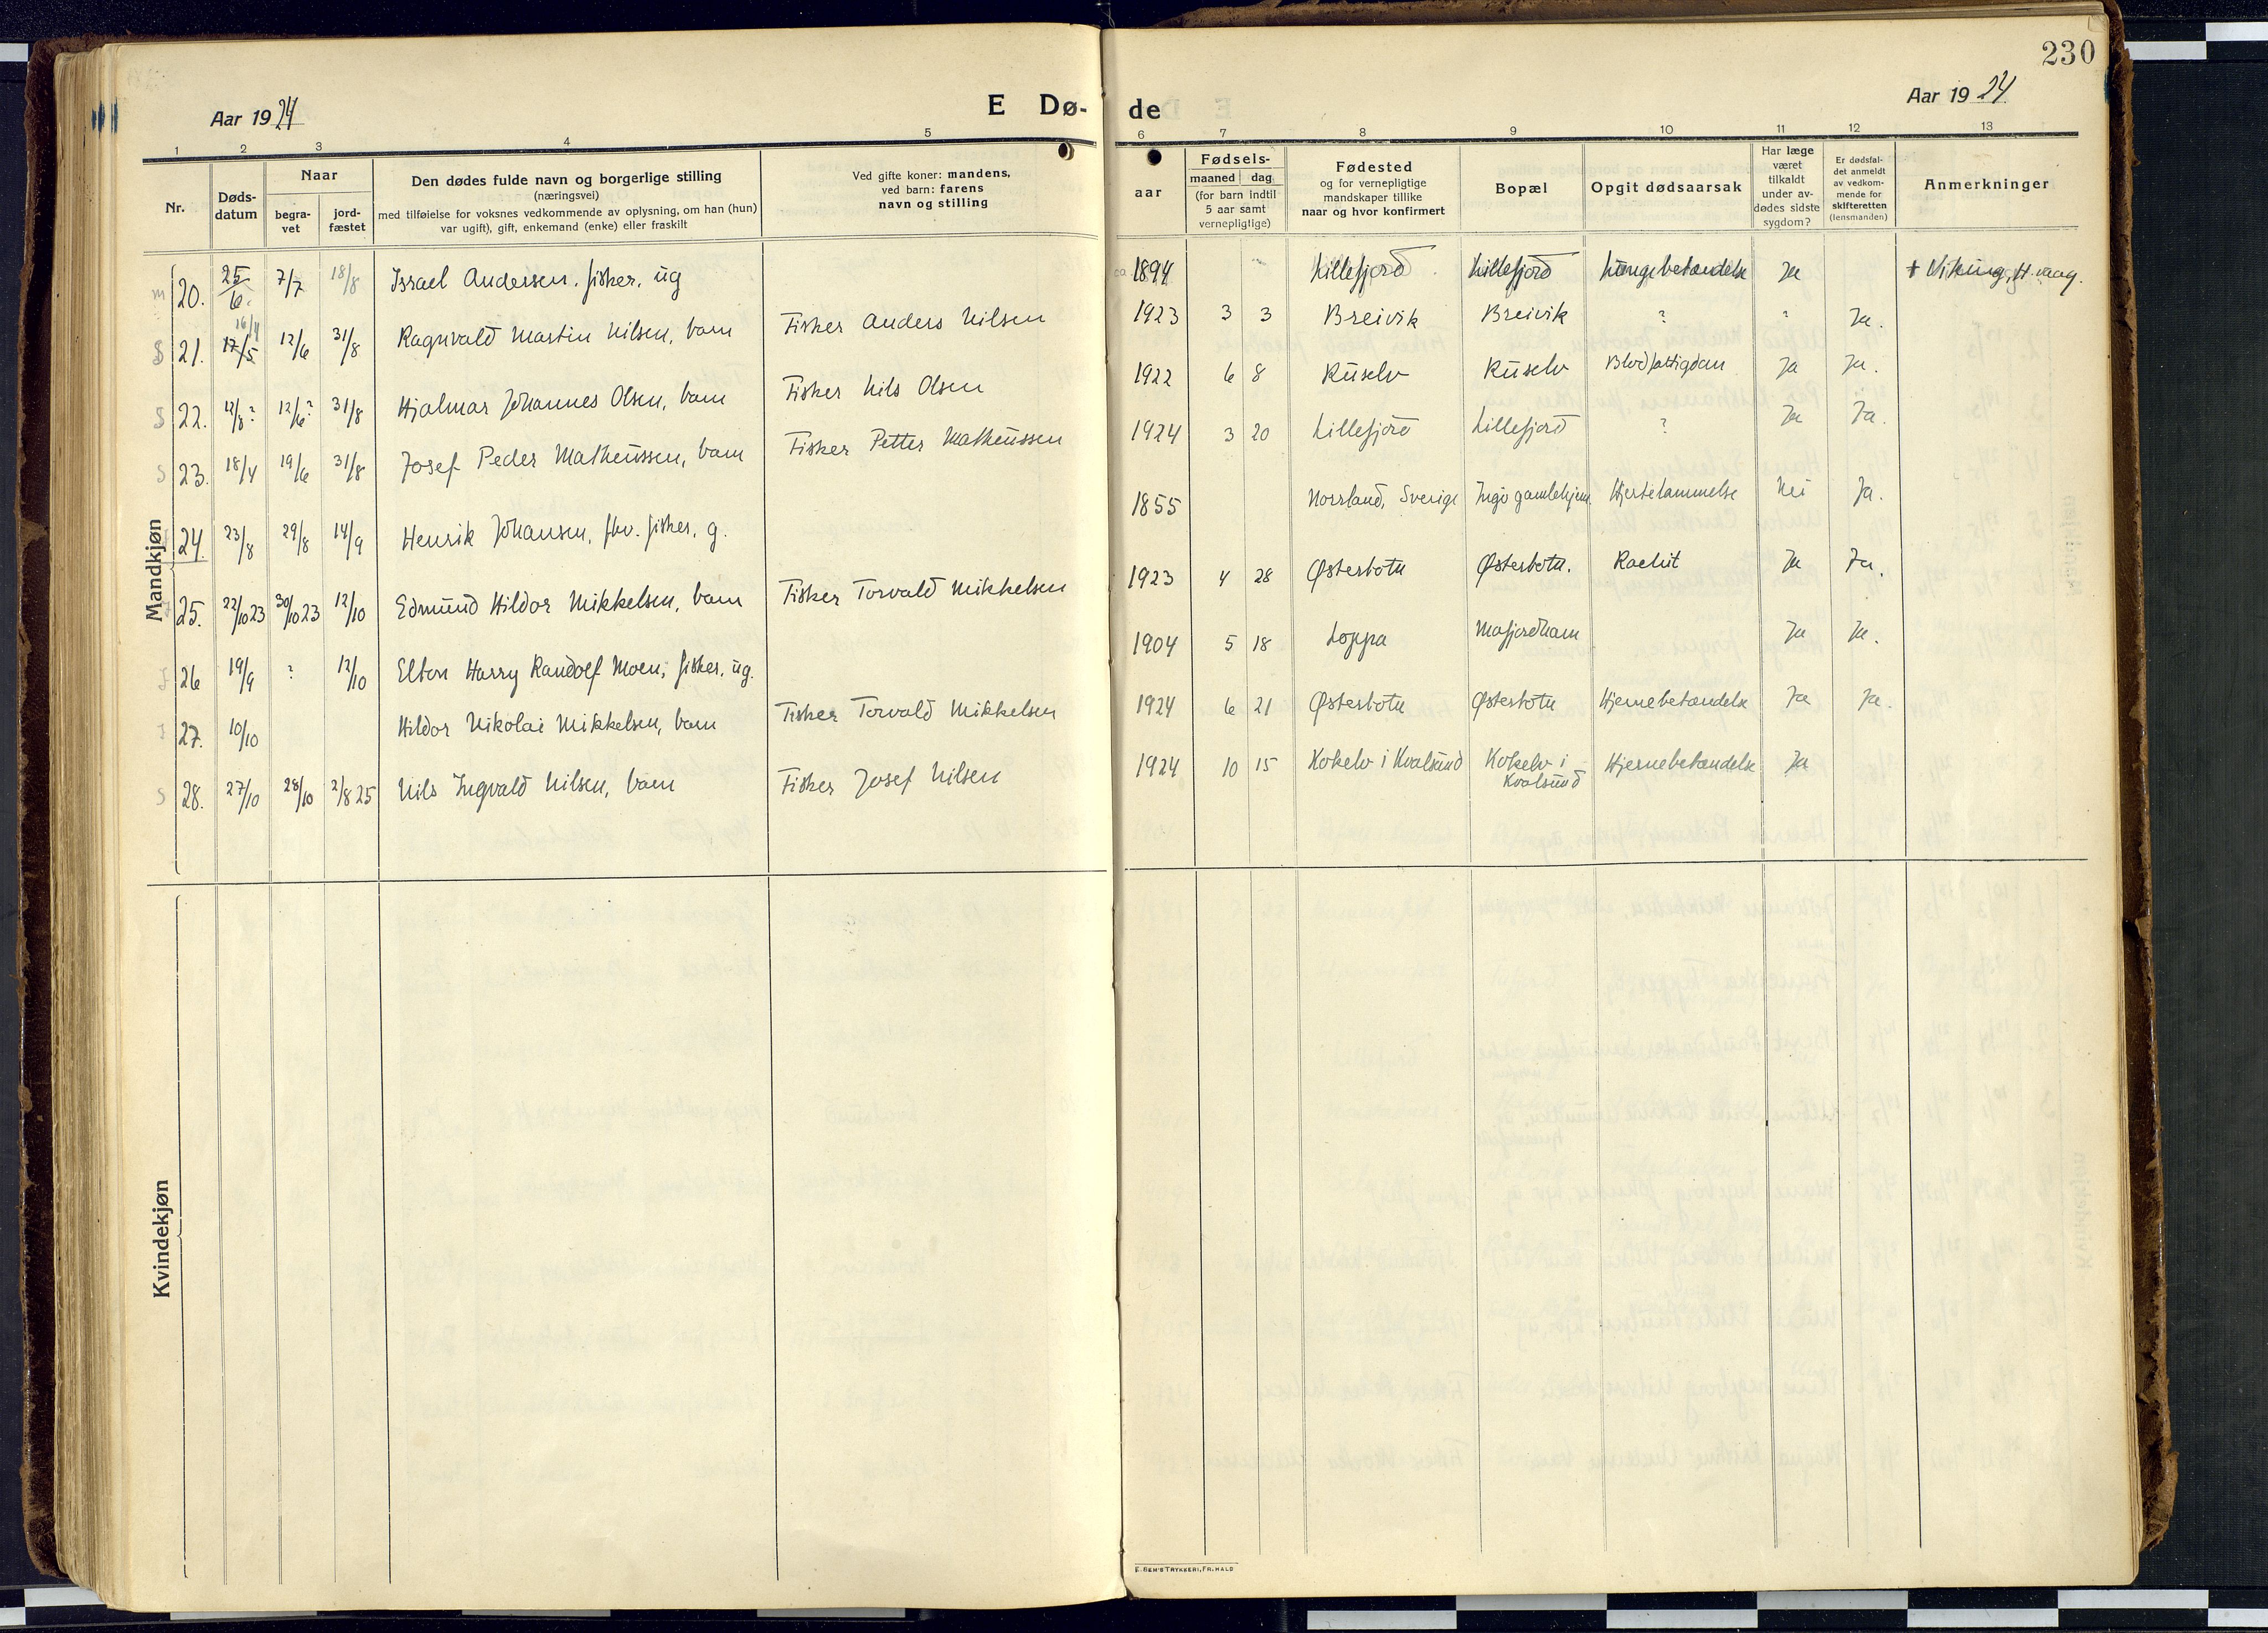 230
Aar 1924
E Dø-
de
Aar 1924
1 2 3 4 5 6 7 8 9 10 11 12 13
Nr.
Døds-
datum
Naar
begra-
vet
jord-
fæstet
Den dødes fulde navn og borgerlige stilling
(næringsvei)
med tilføielse for voksnes vedkommende av oplysning, om han (hun)
var ugift), gift, enkemand (enke) eller fraskilt
Ved gifte koner: mandens,
ved barn: farens
navn og stilling
aar
Fødsels-
maaned dag
(for barn indtil
5 aar samt
vernepligtige)
Fødested
og for vernepligtige
mandskaper tillike
naar og hvor konfirmert
Bopæl
Opgit dødsaarsak
Har læge
været
tilkaldt
under av-
dødes sidste
sygdom?
Er dødsfal-
det anmeldt
av vedkom-
mende for
skifteretten
(lensmanden)
Anmerkninger
Mandkjøn
m 20. 25/6. 7/7 18/8 Israel Andersen, fisker, ug ca. 1894 Lillefjord Lillefjord Lungebetændelse Ja + Viking, H.vaag.
S 21. 16/4 17/5 12/6 31/8 Ragnvald Martin Nilsen, barn Fisker Anders Nilsen 1923 3 3 Breivik Breivik ? ? Ja.
S 22. 12/8? 12/6? 31/8 Hjalmar Johannes Olsen, barn Fisker Nils Olsen 1922 6 8 Ruselv Ruselv Blodfattigdom Ja Ja.
S 23. 18/4 19/6 31/8 Josef Peder Matheussen, barn Fisker Petter Matheussen 1924 3 20 Lillefjord Lillefjord ? Ja Ja.
24. 23/8 29/8 14/9 Henrik Johansen, fhv. fisker, g. 1855 Norrland, Sverige Ingø gamlehjem Hjertelammelse Nei Ja.
25. 22/10 23 30/10 23 12/10 Edmund Hildor Mikkelsen, barn Fisker Torvald Mikkelsen 1923 4 28 Østerbotn Østerbotn. Rachit Ja Ja.
26 19/9 ? 12/10 Elton Harry Randolf Moen, fisker, ug. 1904 5 18 Loppa Mafjordhavn Ja Ja.
27. 10/10 Hildor Nikolai Mikkelsen, barn Fisker Torvald Mikkelsen 1924 6 21 Østerbotn Østerbotn Hjernebetændelse Ja Ja.
S 28. 27/10 28/10 2/8 25 Nils Ingvald Nilsen, barn Fisker Josef Nilsen 1924 10 15 Kokelv i Kvalsund Kokelv i Hjernebetændelse Ja
Kvalsund
Kvindekjøn
E. SEM'S TRYKKERI, FR.HALD